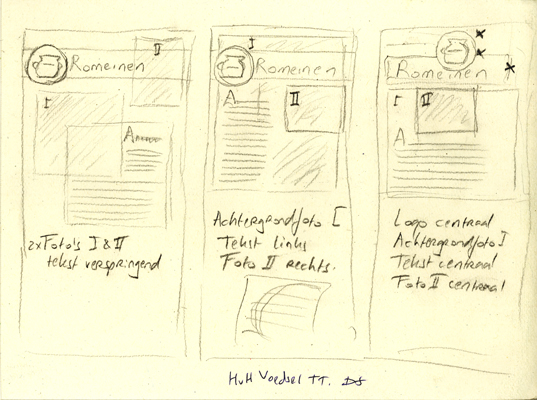 II
Romeinen
I
A
2x Foto's I & II
tekst verspringend
I
Romeinen
A
II
Achtergrondfoto I
Tekst links
Foto II rechts.
Romeinen
I
II
A
Logo centraal
Achtergrondfoto I
Tekst centraal
Foto II centraal
HvH Voedsel TT.